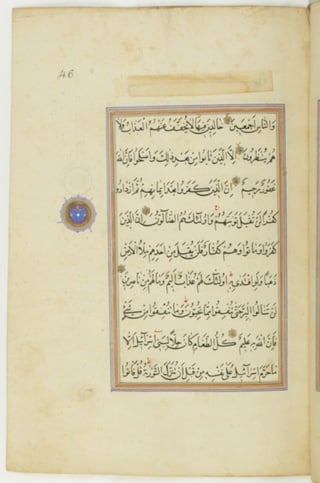 46
وَالنَّاسِ أَجْمَعِينَ خَالِدِينَ فِيهَا لَا يُخَفَّفُ عَنْهُمُ الْعَذَابُ وَلَا
هُمْ يُنْظَرُونَ إِلَّا الَّذِينَ تَابُوا مِنْ بَعْدِ ذَلِكَ وَأَصْلَحُوا فَإِنَّ اللهَ
غَفُورٌ رَحِيمٌ إِنَّ الَّذِينَ كَفَرُوا بَعْدَ إِيمَانِهِمْ ثُمَّ ازْدَادُوا
كُفْرًا لَنْ تُقْبَلَ تَوْبَتُهُمْ وَأُولَئِكَ هُمُ الضَّالُّونَ إِنَّ الَّذِينَ
كَفَرُوا وَمَاتُوا وَهُمْ كُفَّارٌ فَلَنْ يُقْبَلَ مِنْ أَحَدِهِمْ مِلْءُ الْأَرْضِ
ذَهَبًا وَلَوِ افْتَدَى بِهِ أُولَئِكَ لَهُمْ عَذَابٌ أَلِيمٌ وَمَا لَهُمْ مِنْ نَاصِرِينَ
لَنْ تَنَالُوا الْبِرَّ حَتَّى تُنْفِقُوا مِمَّا تُحِبُّونَ وَمَا تُنْفِقُوا مِنْ شَيْءٍ
فَإِنَّ اللهَ بِهِ عَلِيمٌ كُلُّ الطَّعَامِ كَانَ حِلًّا لِبَنِي إِسْرَائِيلَ إِلَّا
مَا حَرَّمَ إِسْرَائِيلُ عَلَى نَفْسِهِ مِنْ قَبْلِ أَنْ تُنَزَّلَ التَّوْرَاةُ قُلْ فَأْتُوا